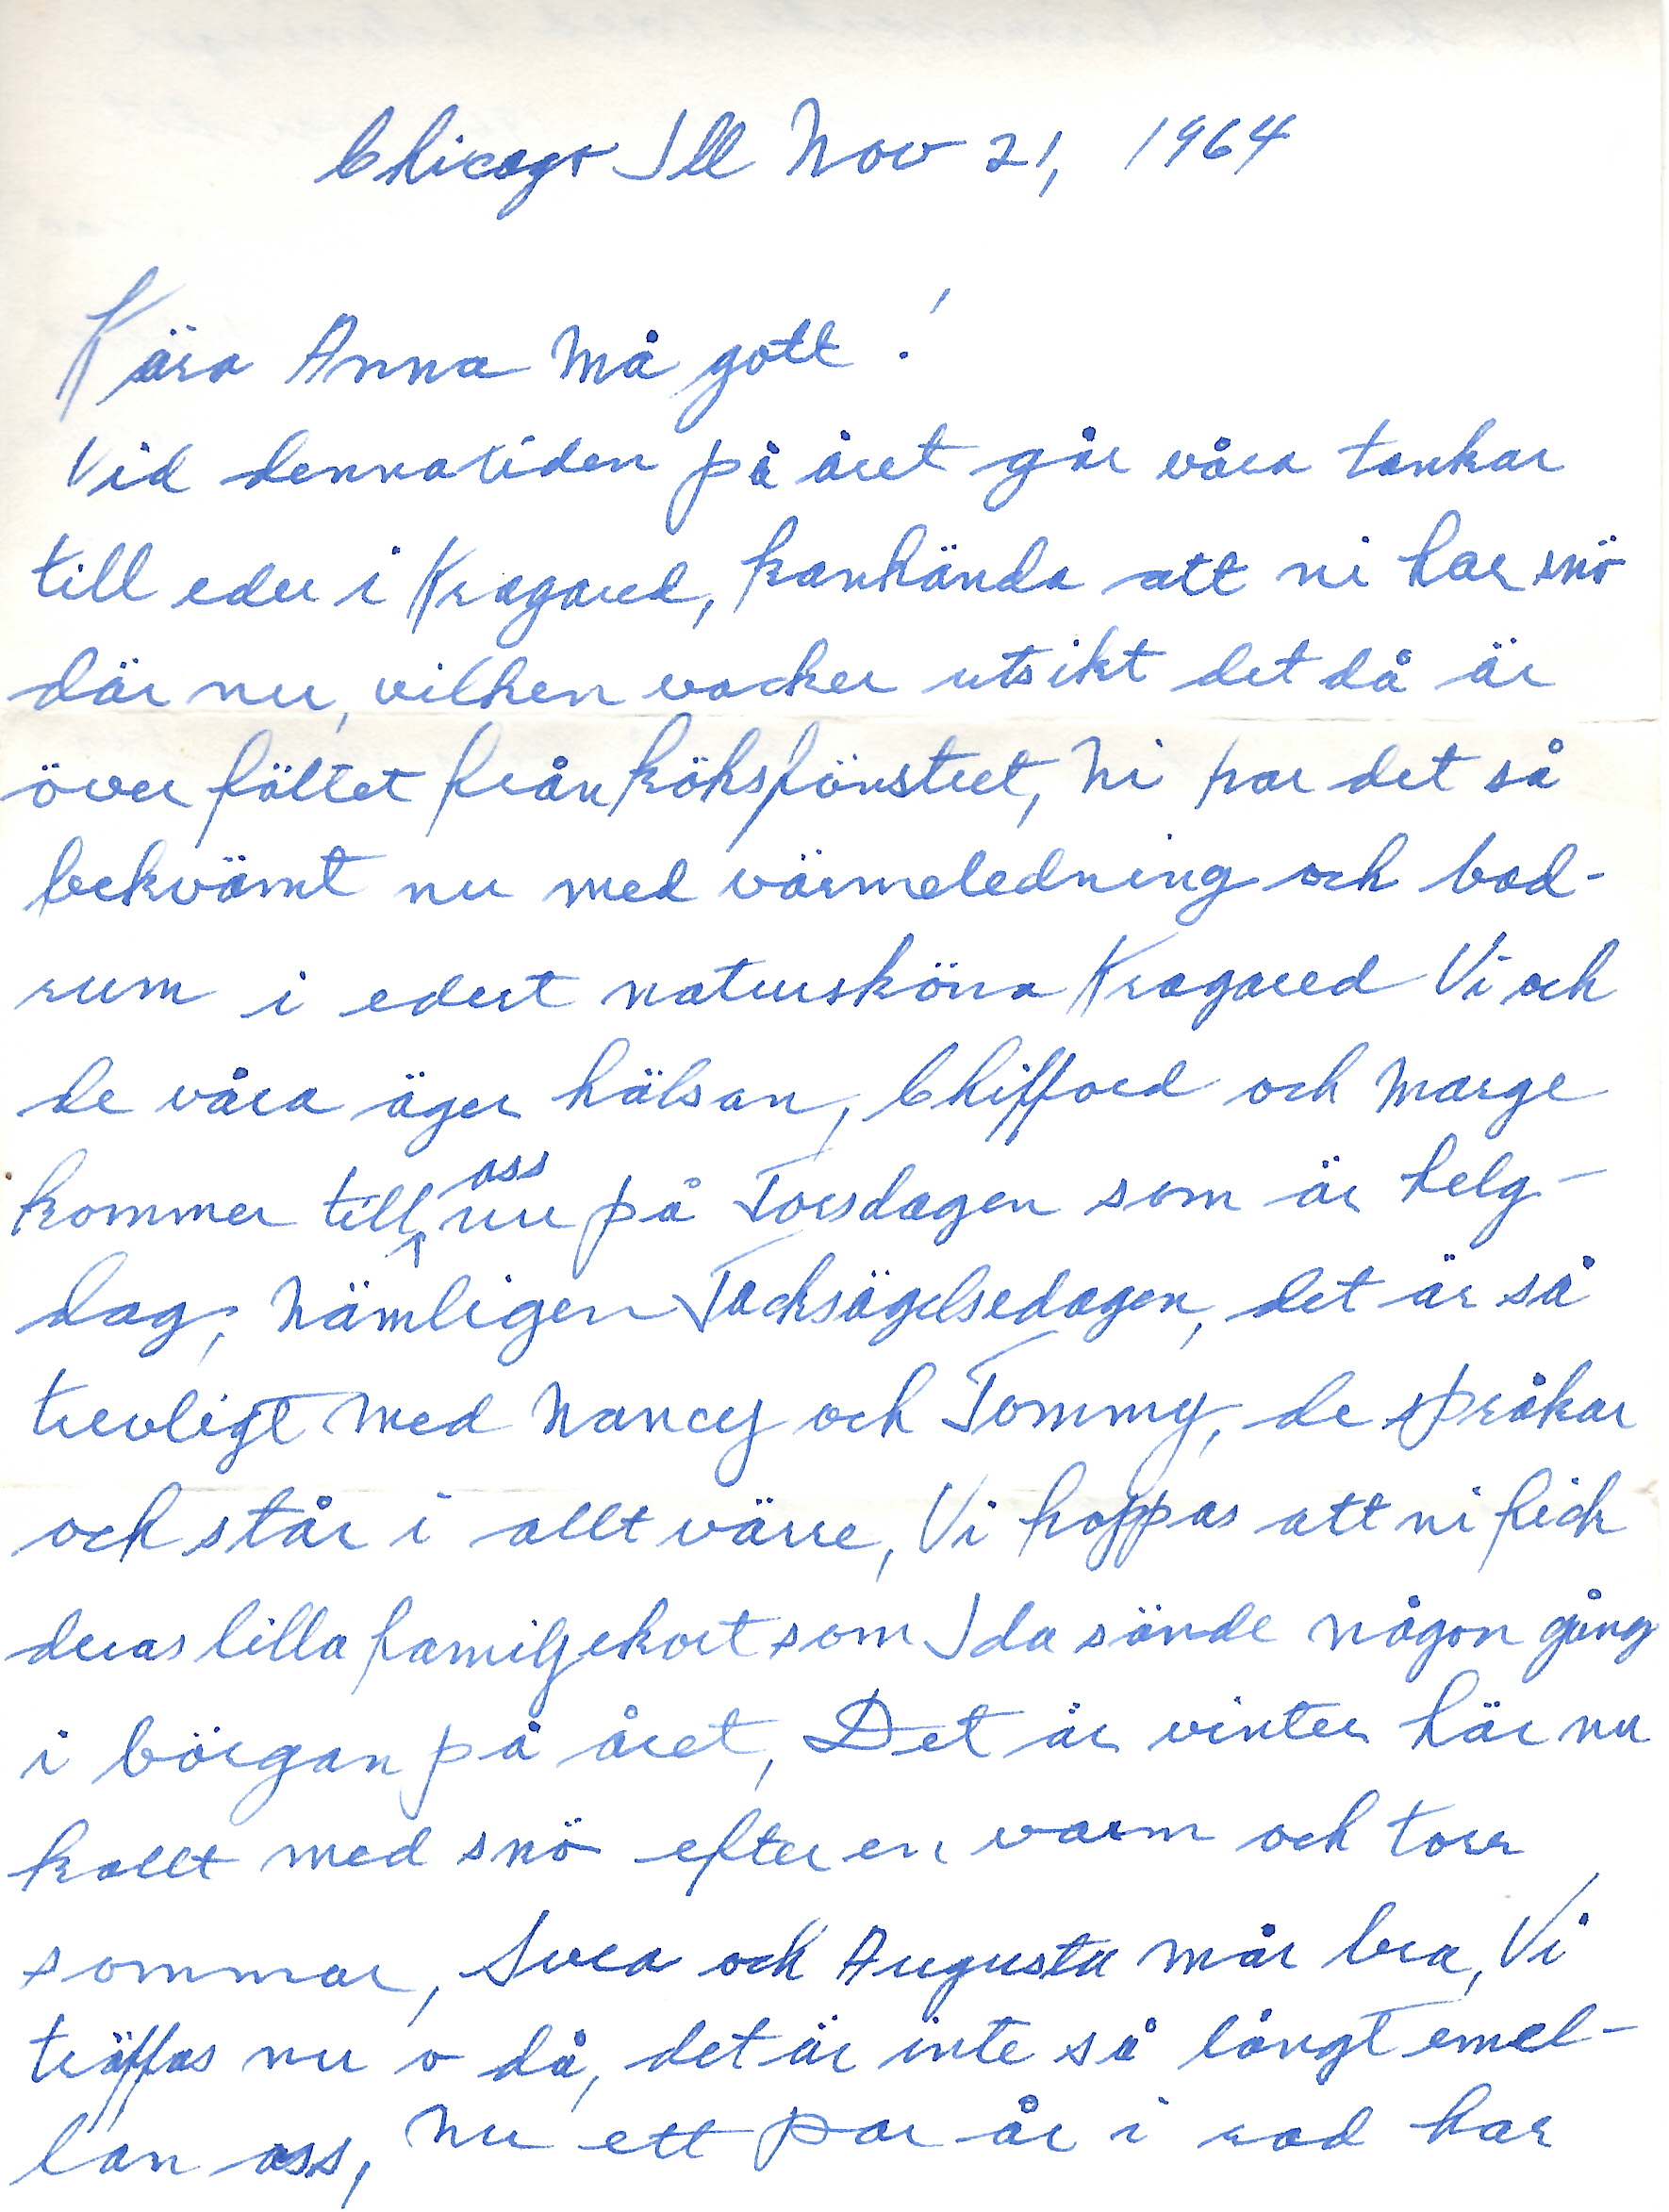 Chicago Ill Nov 21, 1964
Kära Anna Må gott!
Vid dennatiden på året går våra tankar
till eder i Kragared, kanhända att ni har snö
där nu, vilken vacker utsikt det då är
över fältet från köksfönstret, Ni har det så
bekvämt nu med värmeledning och bad-
rum i edert natursköna Kragared Vi och
de våra äger hälsan, Chifford och Marge
kommer till oss nu på Torsdagen som är helg-
dag, Nämligen Tacksägelsedagen, det är så
trevligt med Nancy och Tommy, de språkar
och står i allt värre, Vi hoppas att ni fick
deras lilla familjekort som Ida sände någon gång
i börgan på året, Det är vinter här nu
kallt med snö efter en varm och torr
sommar, Svea och Augusta mår bra, Vi
träffas nu o då, det är inte så långt emel-
lan oss, Nu ett par år i rad har